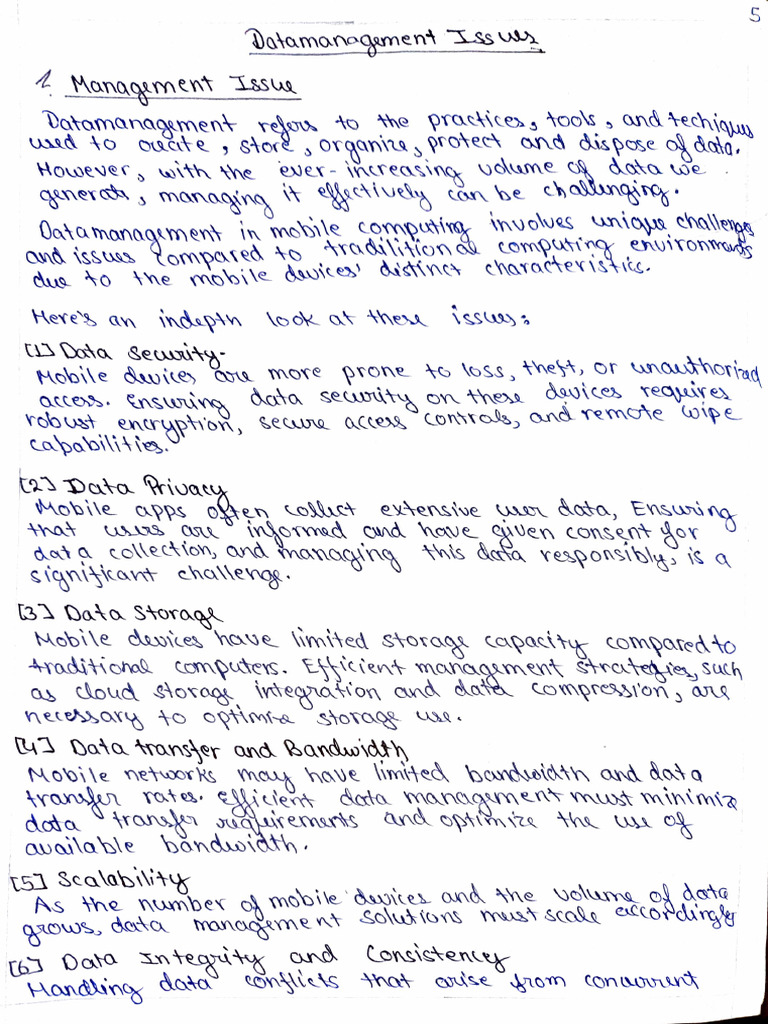 5
Datamanagement Issues
1. Management Issue
Datamanagement refers to the practices, tools, and techiques
used to create, store, organize, protect and dispose of data.
However, with the ever-increasing volume of data we
generate, managing it effectively can be challenging.
Datamanagement in mobile computing involves unique challenges
and issues compared to tradilitional computing environments
due to the mobile devices' distinct characteristics.
Here's an indepth look at these issues:
[1] Data Security-
Mobile devices are more prone to loss, theft, or unauthorized
access. Ensuring data security on these devices requires
robust encryption, secure access controls, and remote wipe
capabilities.
[2] Data Privacy
Mobile apps often collect extensive user data, Ensuring
that users are informed and have given consent for
data collection, and managing this data responsibly, is a
significant challenge.
[3] Data Storage
Mobile devices have limited storage capacity compared to
traditional computers. Efficient management strategies, such
as cloud storage integration and data compression, are
necessary to optimize storage use.
[4] Data transfer and Bandwidth
Mobile networks may have limited bandwidth and data
transfer rates. Efficient data management must minimize
data transfer requirements and optimize the use of
available bandwidth.
[5] Scalability
As the number of mobile devices and the volume of data
grows, data management solutions must scale accordingly
[6] Data Integrity and Consistency
Handling data conflicts that arise from concurrent